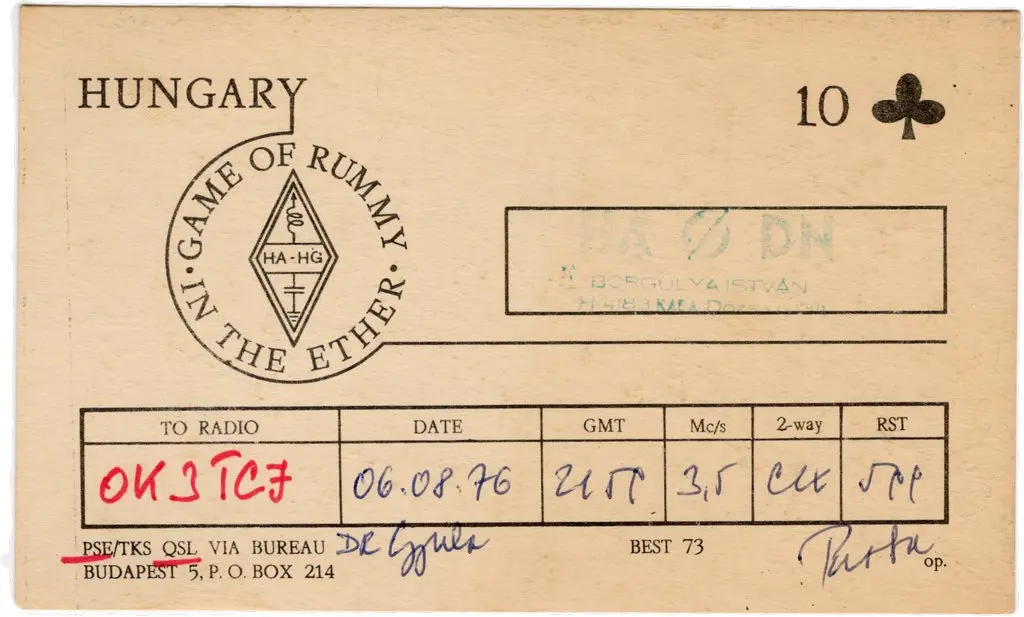 HUNGARY
10 ♣
GAME OF RUMMY
· IN THE ETHER ·
HA-HG
HA Ø DN
BORGULYA ISTVÁN
H 4183 KABA
TO RADIO DATE GMT Mc/s 2-way RST
OK3TCJ 06.08.76 3,5
PSE/TKS QSL VIA BUREAU DR Gyula BEST 73
BUDAPEST 5, P. O. BOX 214 op.